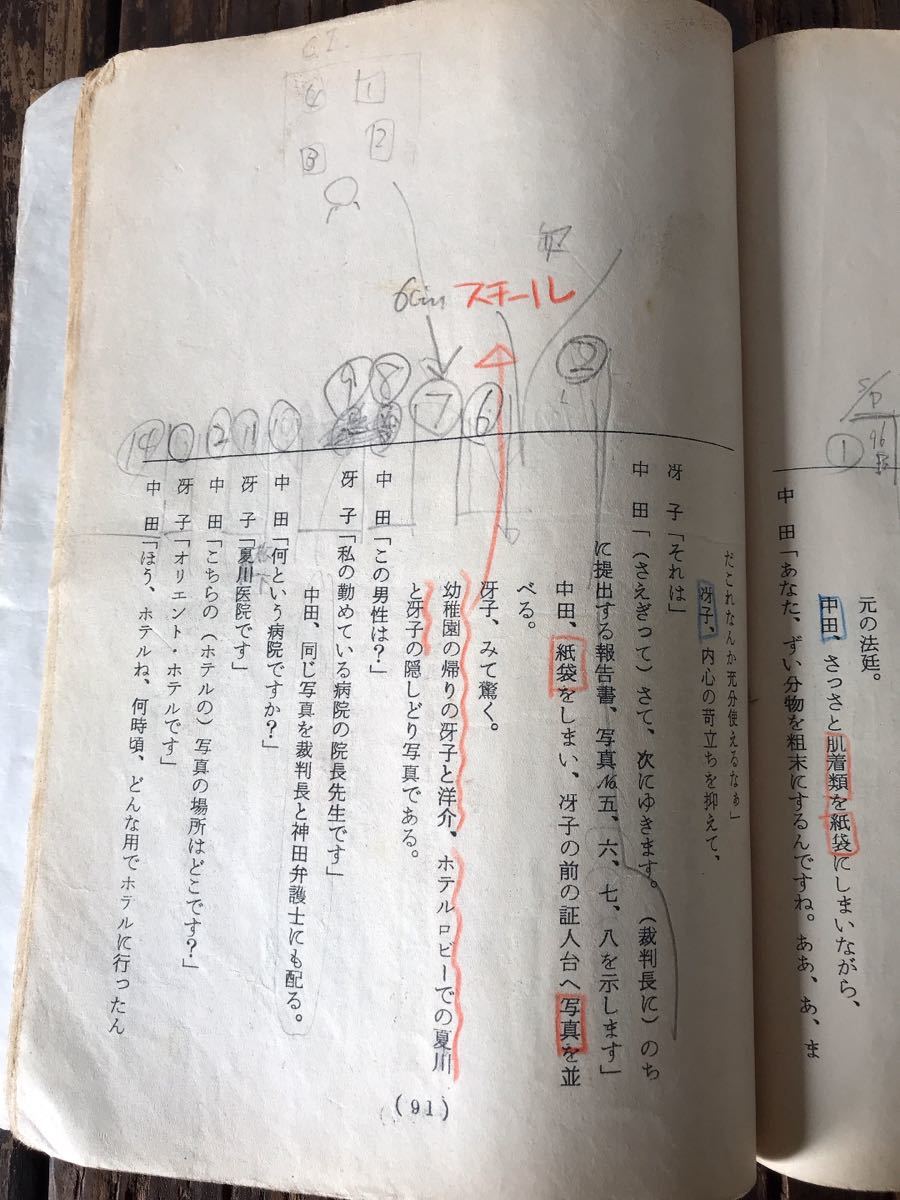 元の法廷。
中田、さっさと肌着類を紙袋にしまいながら、
中　田「あなた、ずい分物を粗末にするんですね。ああ、あ、ま
だこれなんか充分使えるなぁ」
冴子、内心の苛立ちを抑えて、
冴　子「それは」
中　田「（さえぎって）さて、次にゆきます。（裁判長に）のち
に提出する報告書、写真№五、六、七、八を示します」
中田、紙袋をしまい、冴子の前の証人台へ写真を並
べる。
冴子、みて驚く。
幼稚園の帰りの冴子と洋介、ホテルロビーでの夏川
と冴子の隠しどり写真である。
中　田「この男性は？」
冴　子「私の勤めている病院の院長先生です」
中田、同じ写真を裁判長と神田弁護士にも配る。
中　田「何という病院ですか？」
冴　子「夏川医院です」
中　田「こちらの（ホテルの）写真の場所はどこです？」
冴　子「オリエント・ホテルです」
中　田「ほう、ホテルね、何時頃、どんな用でホテルに行ったん
(91)
C.I.
4
1
3
2
スチール
①
⑥
⑦
⑧
⑨
⑩
⑪
⑫
⑬
⑭